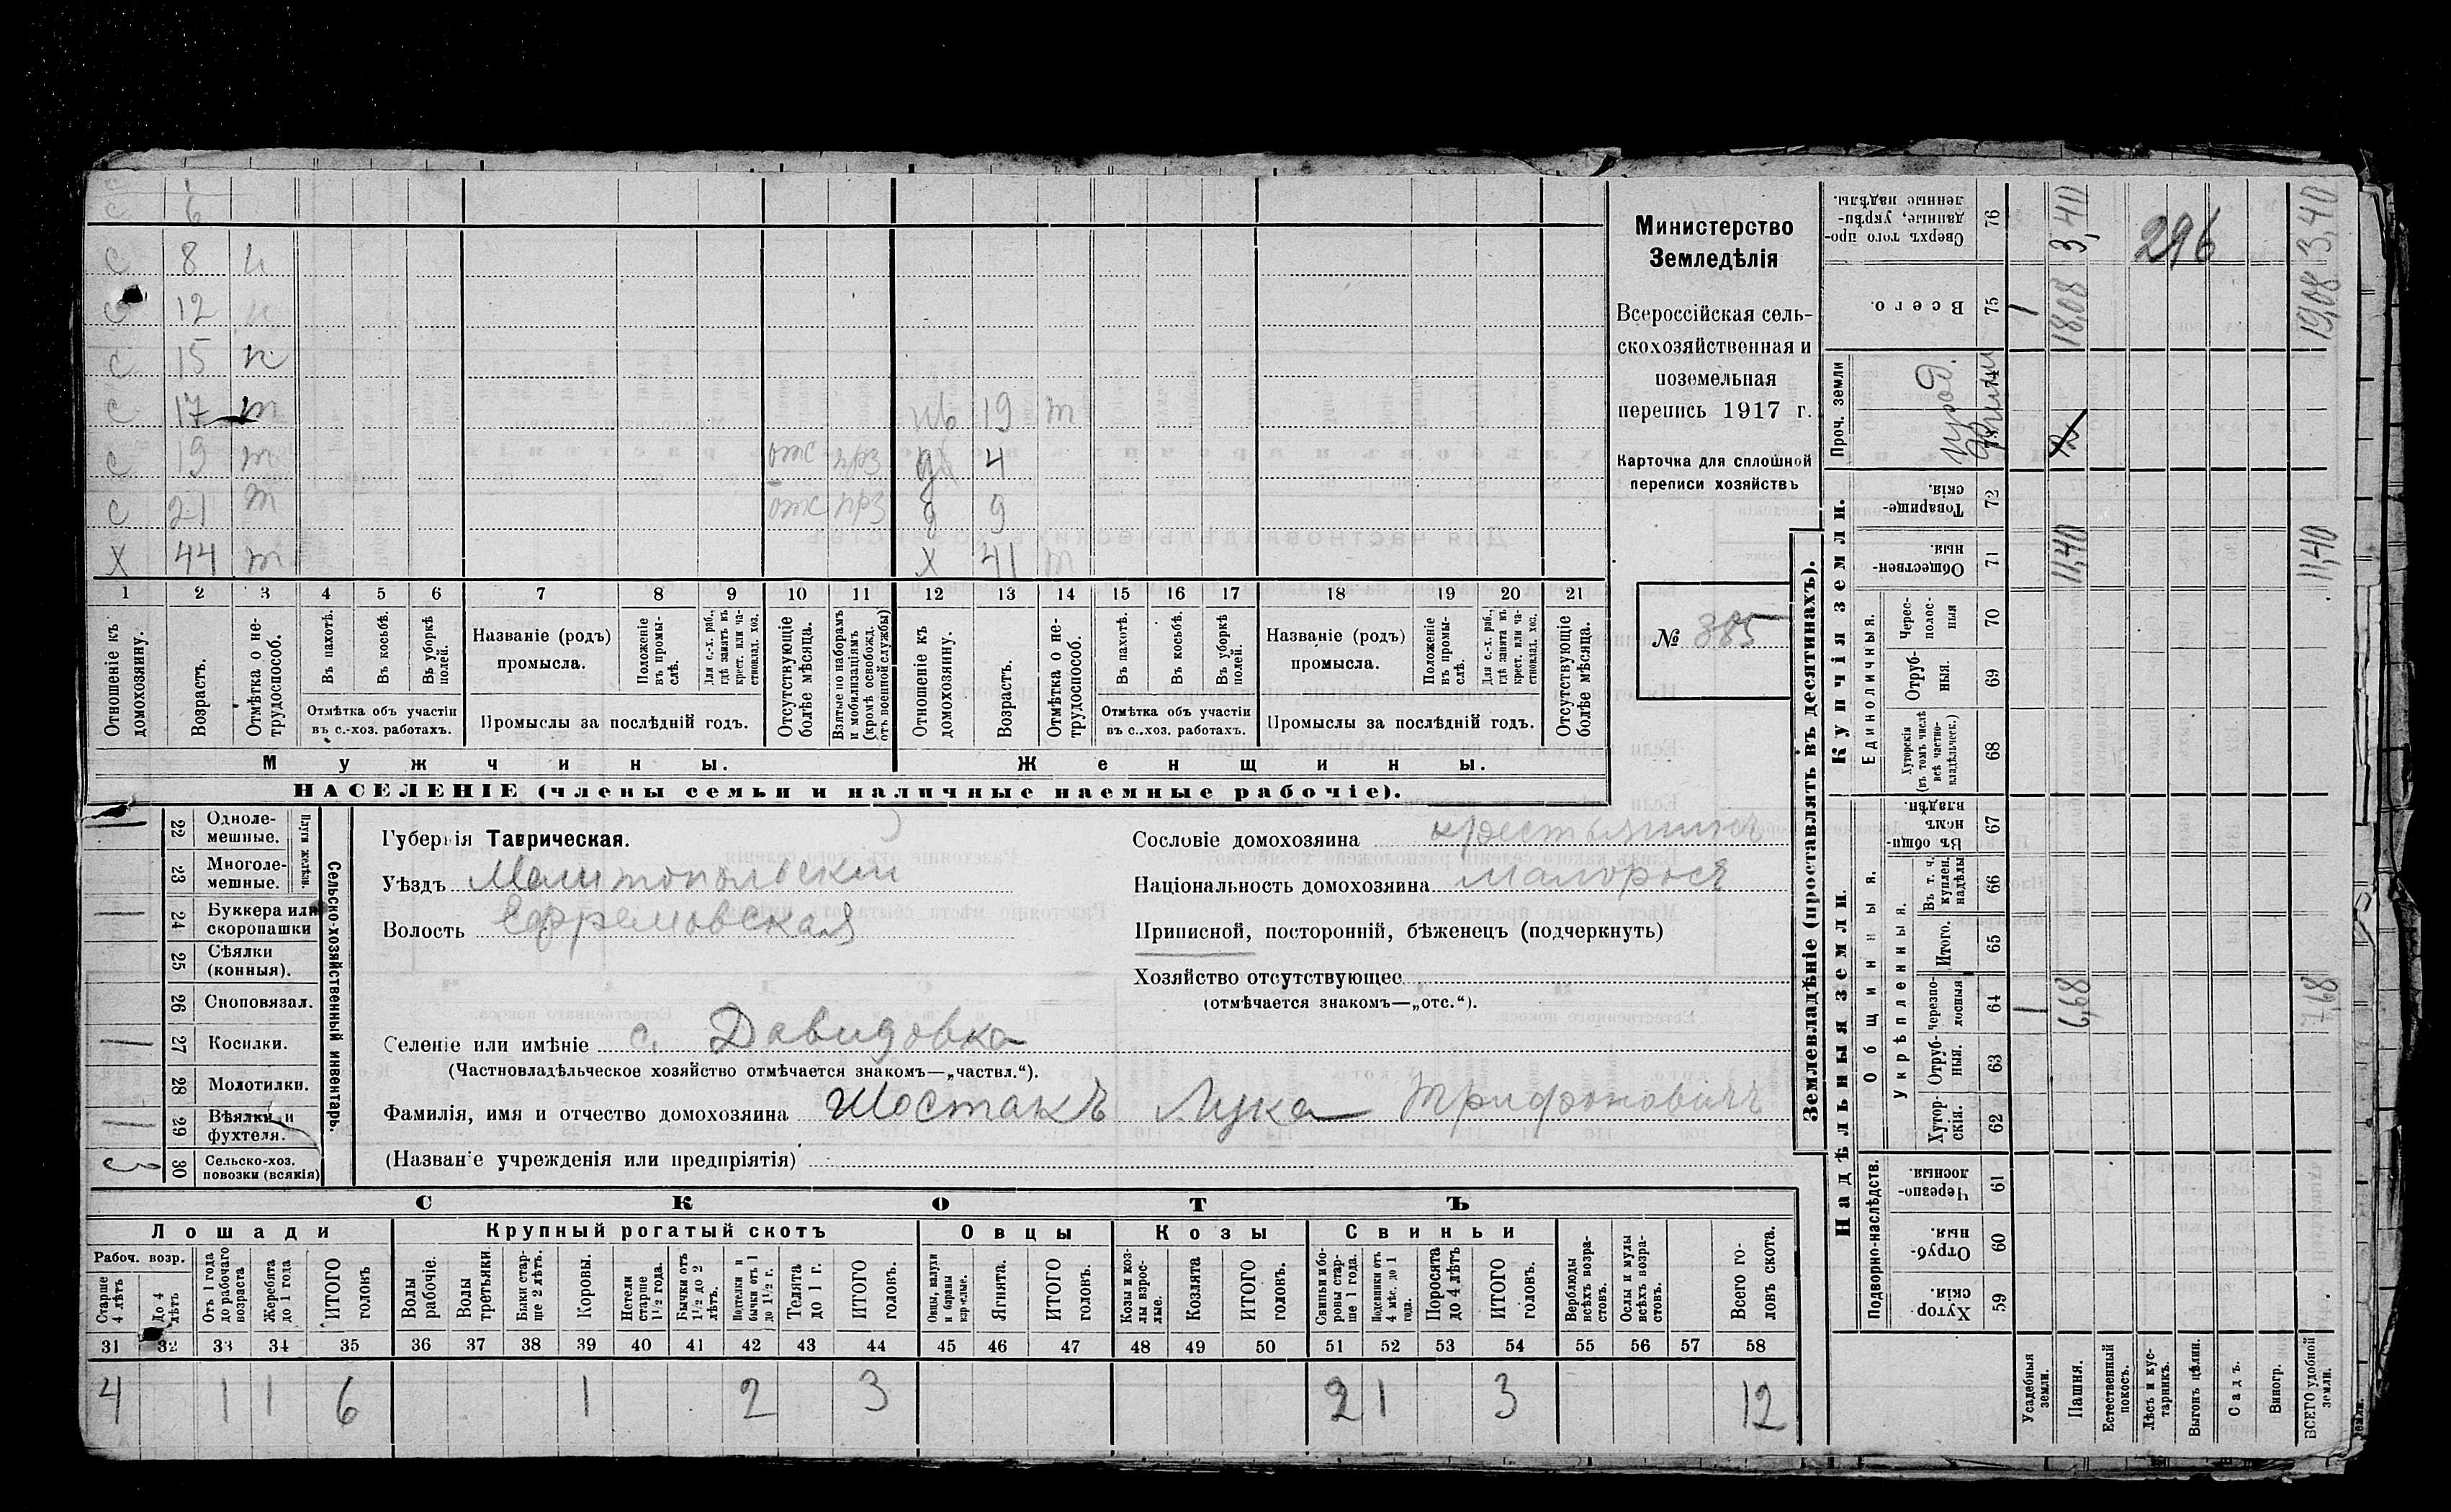 с 6
с 8 н
с 12 н
с 15 н
с 17 т нв 19 т
с 19 т отс прз д 4
с 21 т отс прз д 9
х 44 т х 41 т
1 2 3 4 5 6 7 8 9 10 11 12 13 14 15 16 17 18 19 20 21
Отношеніе къ домохозяину.
Возрастъ.
Отмѣтка о нетрудоспособ.
Въ пахотѣ.
Въ косьбѣ.
Въ уборкѣ полей.
Отмѣтка объ участіи
въ с.-хоз. работахъ.
Названіе (родъ)
промысла.
Положеніе въ промыслѣ.
Для с.-х. раб., гдѣ занятъ въ крест. или частновлад. хоз.
Промыслы за послѣдній годъ.
Отсутствующіе болѣе мѣсяца.
Взятые по наборамъ и мобилизаціямъ (кромѣ освобожд. отъ военной службы)
Отношеніе къ домохозяину.
Возрастъ.
Отмѣтка о нетрудоспособ.
Въ пахотѣ.
Въ косьбѣ.
Въ уборкѣ полей.
Отмѣтка объ участіи
въ с..хоз. работахъ.
Названіе (родъ)
промысла.
Положеніе въ промыслѣ.
Для с.-х. раб., гдѣ занята въ крест. или частновлад. хоз.
Промыслы за послѣдній годъ.
Отсутствующіе болѣе мѣсяца.
Мужчины. Женщины.
НАСЕЛЕНІЕ (члены семьи и наличные наемные рабочіе).
Министерство
Земледѣлія
Всероссійская сель-
скохозяйственная и
поземельная
перепись 1917 г.
Карточка для сплошной
переписи хозяйствъ
№ 385
22 Однолемешные.
23 Многолемешные.
Плуги желѣзн.
24 Буккера или скоропашки
25 Сѣялки (конныя).
26 Сноповязал.
27 Косилки.
28 Молотилки.
29 Вѣялки и фухтеля.
30 Сельско-хоз. повозки (всякія)
3
Сельско-хозяйственный инвентарь.
Губернія Таврическая.
Уѣздъ Мелитопольскій
Волость Ефремовская
Сословіе домохозяина крестьянинъ
Національность домохозяина малороссъ
Приписной, посторонній, бѣженецъ (подчеркнуть)
Хозяйство отсутствующее
(отмѣчается знакомъ—„отс.“).
Селеніе или имѣніе с. Давидовка
(Частновладѣльческое хозяйство отмѣчается знакомъ—„частвл.“).
Фамилія, имя и отчество домохозяина Шостакъ Лука Трифоновичъ
(Названіе учрежденія или предпріятія)
СКОТЪ
Лошади Крупный рогатый скотъ Овцы Козы Свиньи
Рабоч. возр.
Старше 4 лѣтъ
До 4 лѣтъ
Отъ 1 года до рабочаго возраста
Жеребята до 1 года
ИТОГО головъ
Волы рабочіе.
Волы третьяки.
Быки старше 2 лѣтъ.
Коровы.
Нетели старше 1½ года.
Бычки отъ 1½ до 2 лѣтъ.
Подтелки и бычки отъ 1 до 1½ г.
Телята до 1 г.
ИТОГО головъ.
Овцы, валухи и бараны взрослые.
Ягнята.
ИТОГО головъ.
Козы и козлы взрослые.
Козлята
ИТОГО головъ.
Свиньи и боровы старше 1 года.
Подсвинки отъ 4 мѣс. до 1 года.
Поросята до 4 лѣтъ
ИТОГО головъ.
Верблюды всѣхъ возрастовъ.
Ослы и мулы всѣхъ возрастовъ.
Всего головъ скота.
31 32 33 34 35 36 37 38 39 40 41 42 43 44 45 46 47 48 49 50 51 52 53 54 55 56 57 58
4 1 1 6 1 2 3 2 1 3 12
Землевладѣніе (проставлять въ десятинахъ).
Купчія земли.
Надѣльныя земли.
Сверхъ того проданные, укрѣпленные надѣлы. 76 3,40 296 3,40
Всего. 75 1 18,08 19,08
Проч. земли
74
73
Товарищескія. 72
Общественныя. 71 11,40 11,40
Единоличныя.
Чересполосныя 70
Отрубныя. 69
Хуторскія (въ томъ числѣ всѣ частновладѣльческ.) 68
Общинныя.
Въ общинномъ владѣн. 67
Укрѣпленныя.
Въ т. ч. куплен. надѣлы 66
Итого. 65
черезполосныя 64 1 6,68 7,68
Отрубныя. 63
Хуторскія. 62
Подворно-наслѣдств.
Черезполосныя. 61
Отрубныя. 60
Хуторскія. 59
Усадебныя земли.
Пашня.
Естественный покосъ.
Лѣсъ и кустарникъ.
Выгонъ цѣлин.
Садъ.
Виногр.
ВСЕГО удобной земли.